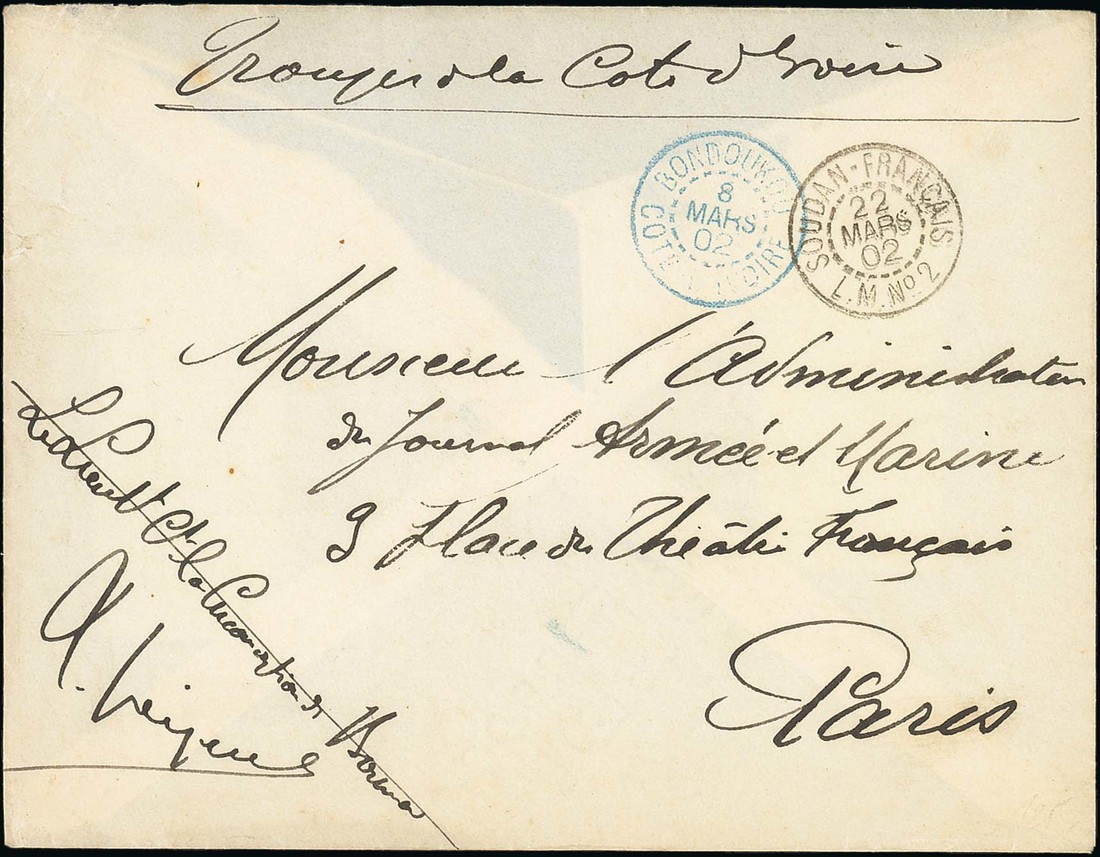 Troupes de la Cote d'Ivoire
BONDOUKOU
8
MARS
02
COTE D'IVOIRE
SOUDAN-FRANÇAIS
22
MARS
02
L.M. No 2
Monsieur l'Administrateur
du Journal Armée et Marine
9 Place du Théâtre Français
Paris
Le Lieut Ct la Circonscription de
A.